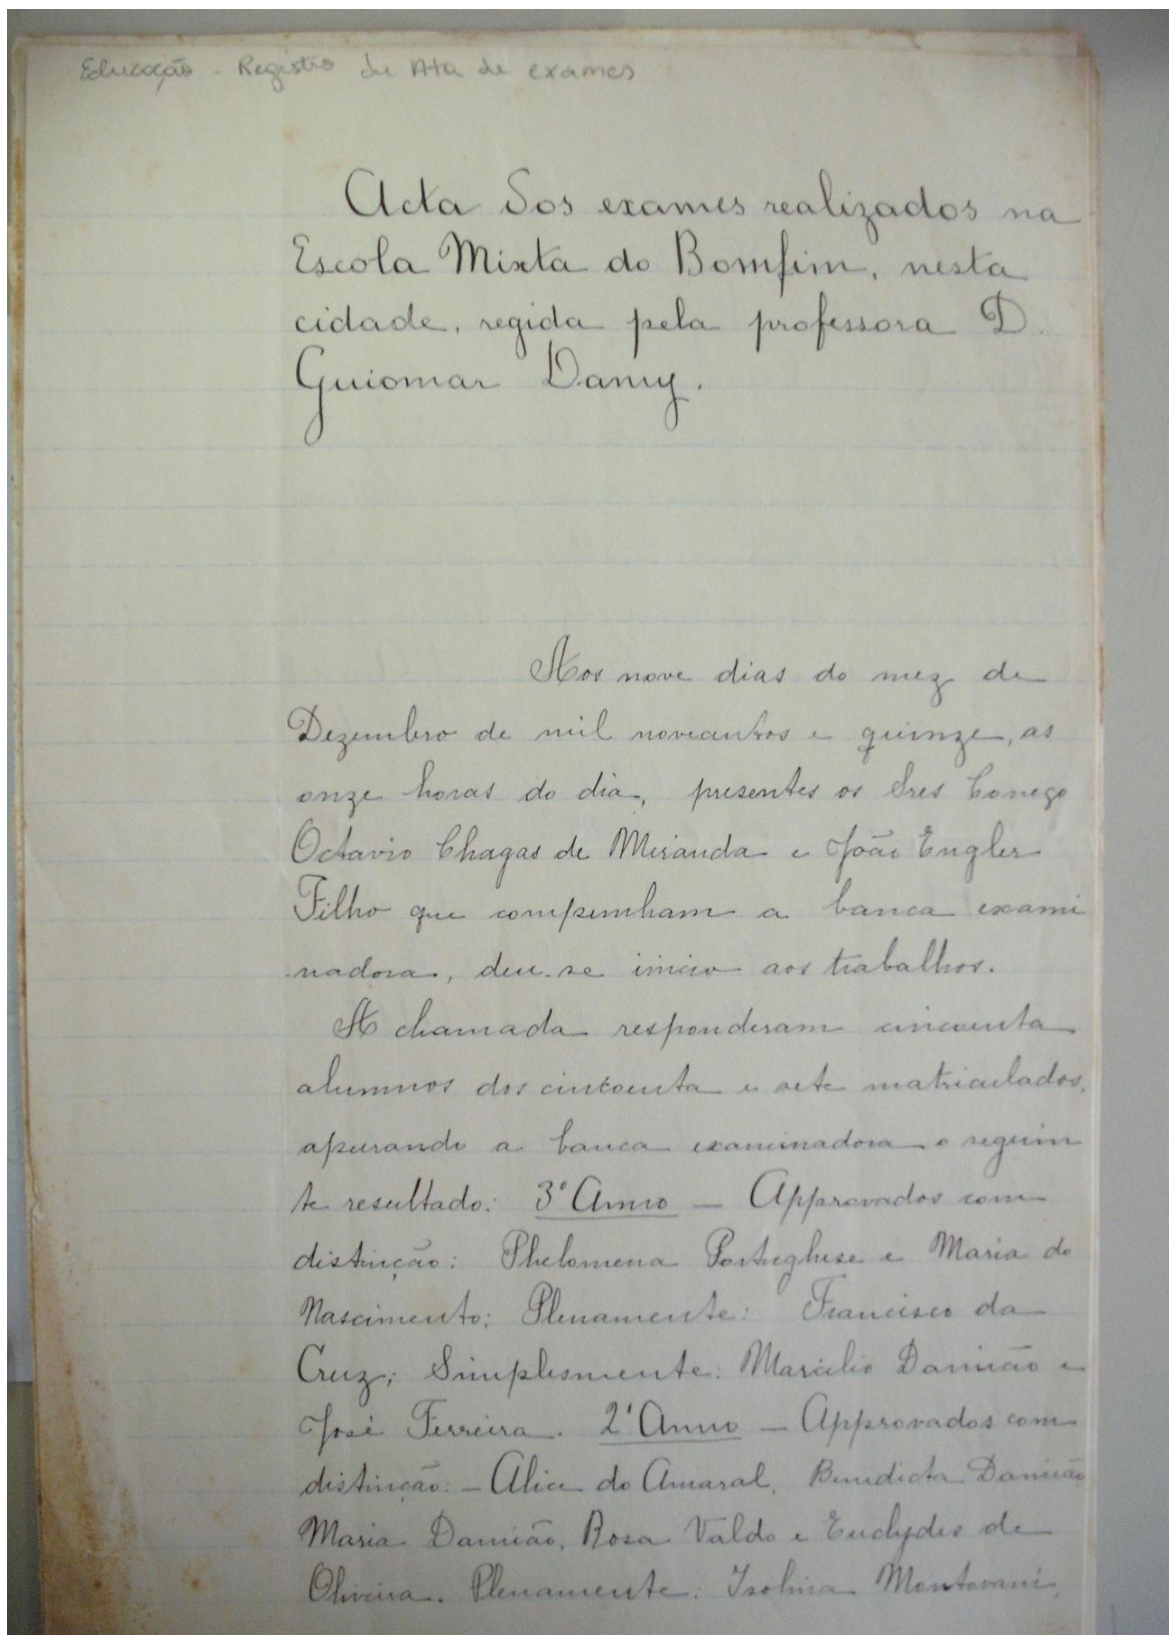 Educação - Registro de Ata de exames
Acta dos exames realizados na
Escola Mixta do Bomfim, nesta
cidade, regida pela professora D.
Guiomar Damy.
Aos nove dias do mez de
Dezembro de mil novecentos e quinze, as
onze horas do dia, presentes os Snres Conego
Octavio Chagas de Miranda e João Engler
Filho que compunham a banca exami
nadora, deu-se inicio aos trabalhos.
A chamada responderam cincoenta
alumnos dos cincoenta e sete matriculados,
apurando a banca examinadora o seguin
te resultado: 3º Anno — Approvados com
distincção: Phelomena Portughese e Maria do
Nascimento; Plenamente: Francisco da
Cruz; Simplesmente: Marcilio Damião e
José Ferreira. 2º Anno — Approvados com
distincção: — Alice do Amaral, Benedicta Damião
Maria Damião, Rosa Valdo e Euclydes de
Oliveira. Plenamente: Isolina Montovani,